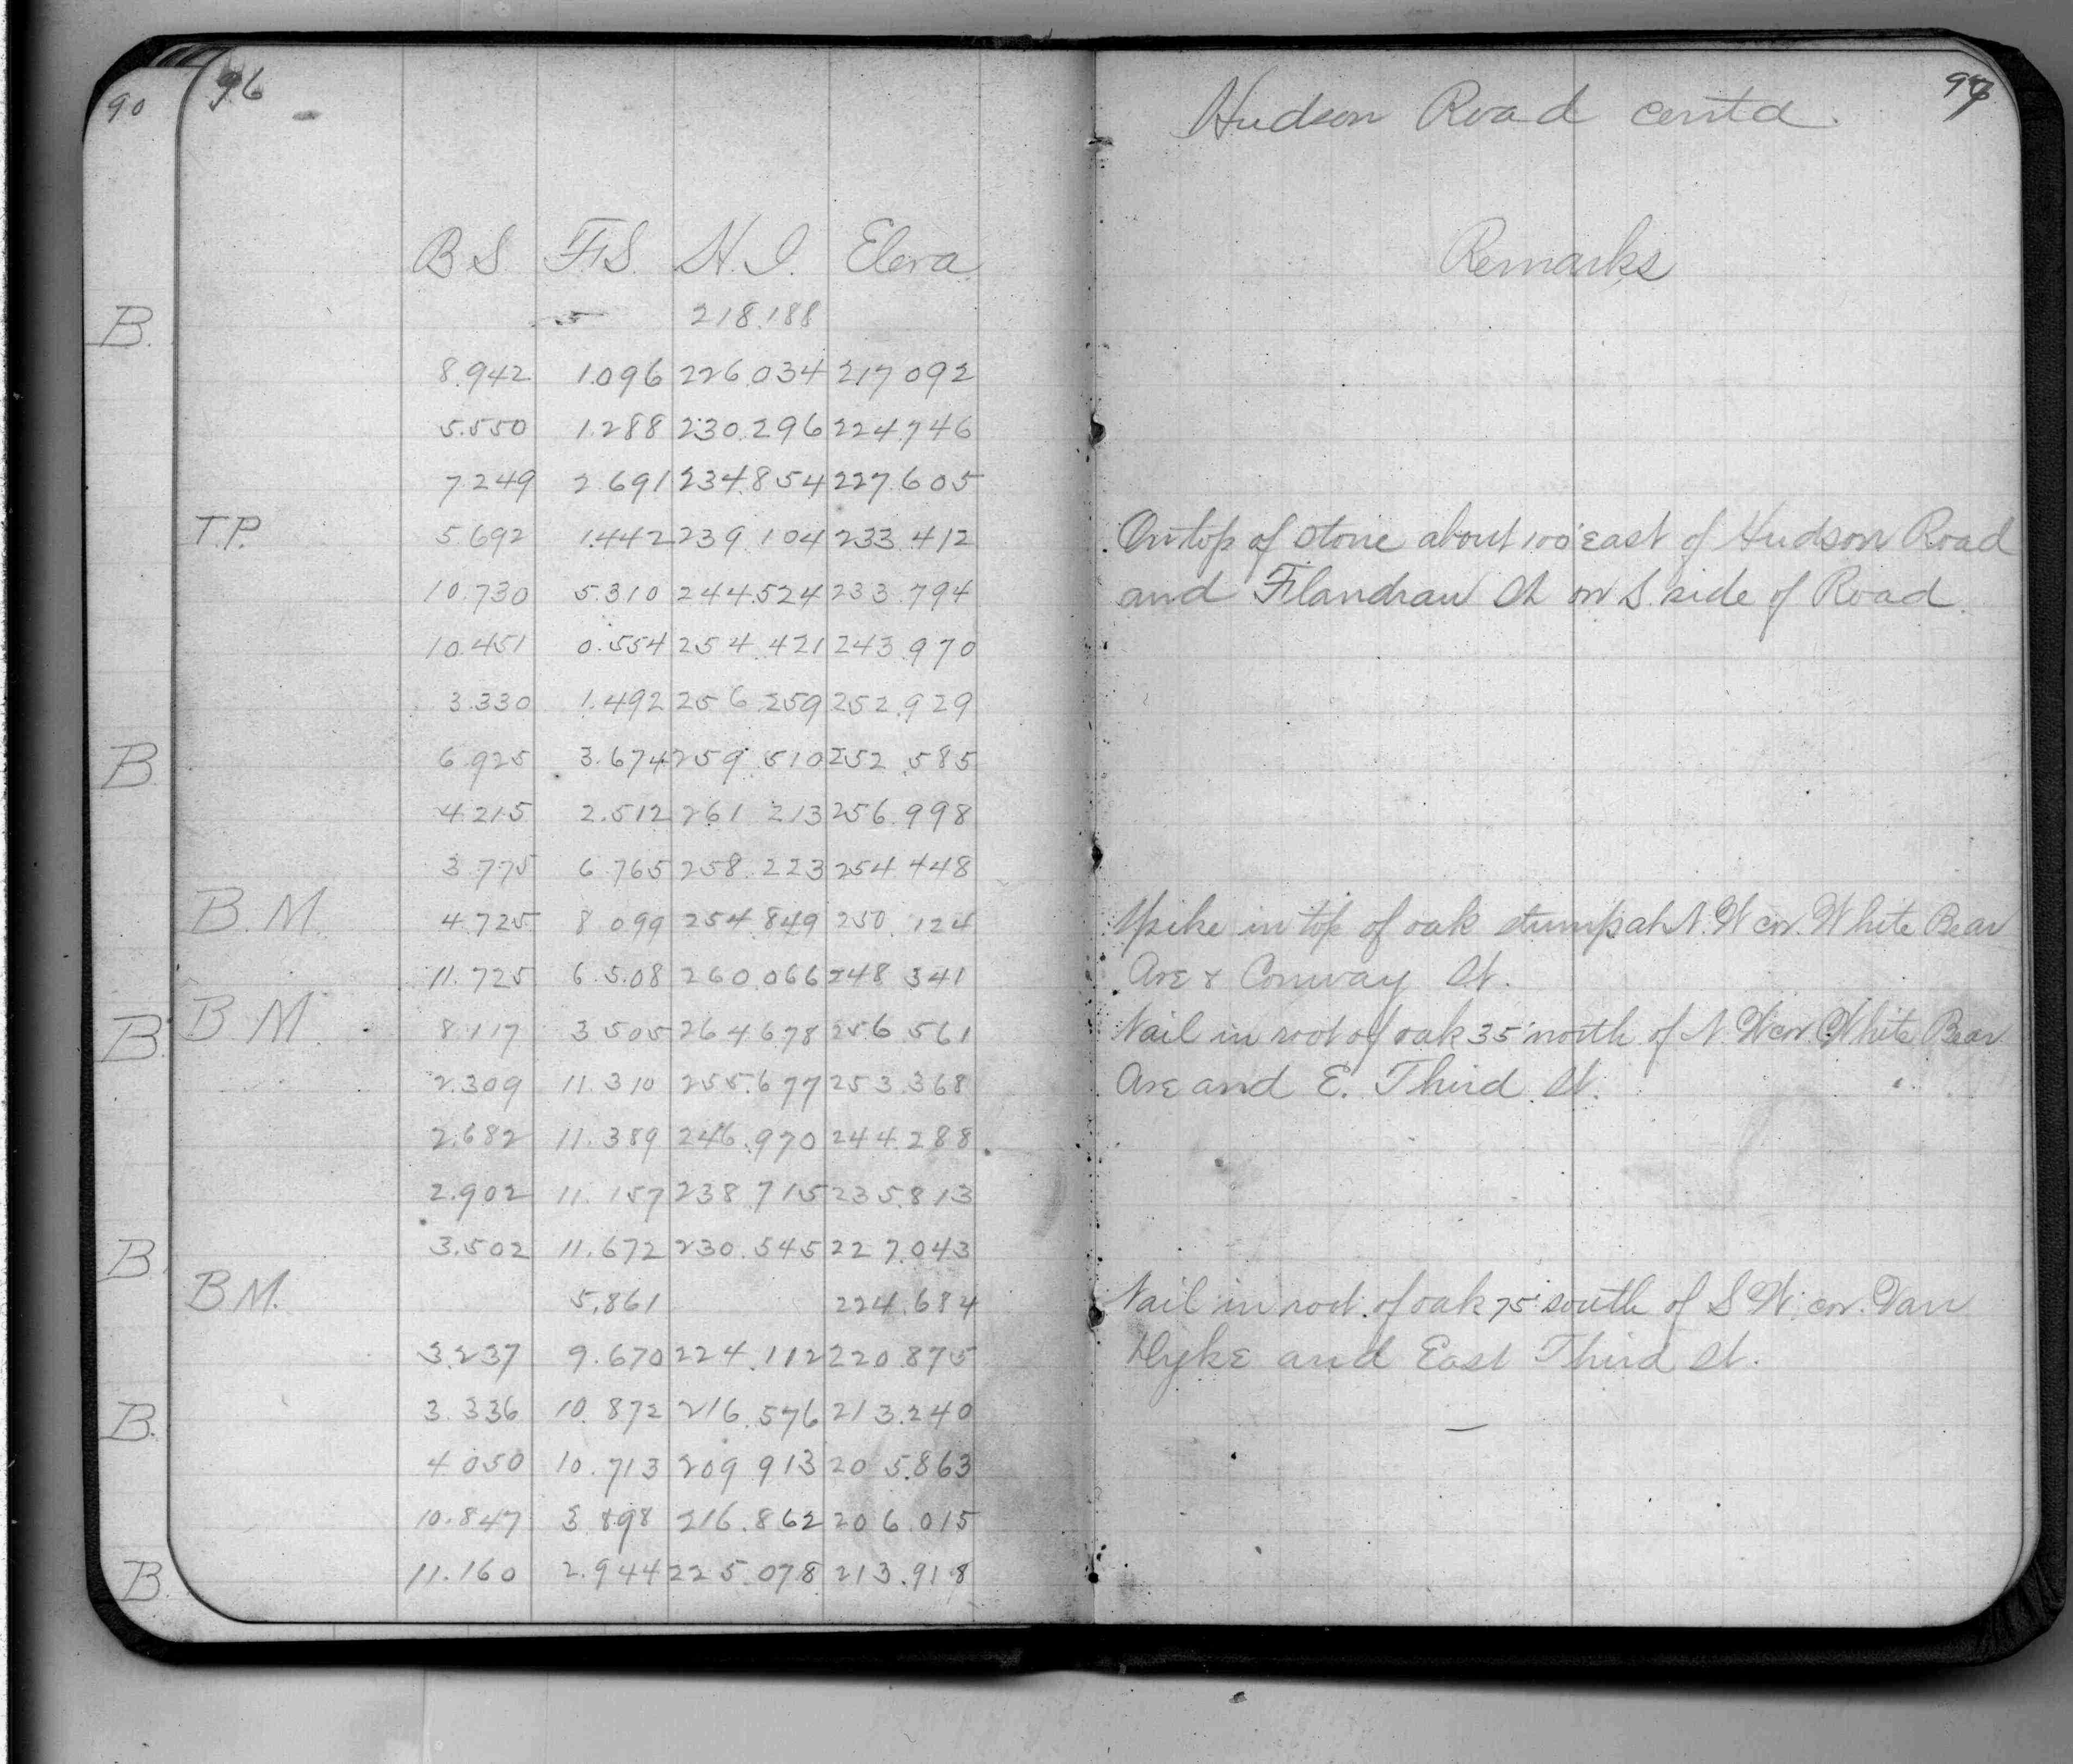 90
96
97
Hudson Road contd.
B.S. F.S. H.I. Eleva.
Remarks
B. 218.188
8.942 1.096 226.034 217 092
5.550 1.288 230.296 224.746
7.249 2 691 234.854 227.605
T.P. 5.692 1.442 239.104 233.412 On top of stone about 100' east of Hudson Road
10.730 5.310 244.524 233.794 and Flandrau St on S. side of Road.
10.451 0.554 254.421 243.970
3.330 1.492 256.259 252.929
B. 6.925 3.674 259.510 252.585
4.215 2.512 261 213 256.998
3.775 6 765 258.223 254 448
B.M. 4.725 8 099 254.849 250.124 Spike in top of oak stump at N.W cor. White Bear
11.725 6.508 260.066 248 341 Ave & Conway St.
B. B.M. 8.117 3 505 264 678 256 561 Nail in root of oak 35' north of N.W cor. White Bear
2.309 11.310 255.677 253 368 Ave and E. Third St.
2.682 11.389 246.970 244.288
2.902 11.157 238 715 235.813
B. 3.502 11.672 230.545 227.043
B.M. 5.861 224.684 Nail in root of oak 75' south of S W. cor. Van
3.237 9.670 224.112 220.875 Dyke and East Third St.
B. 3.336 10.872 216.576 213.240
4.050 10.713 209 913 205.863
10.847 3 898 216.862 206.015
B. 11.160 2.944 225.078 213.918